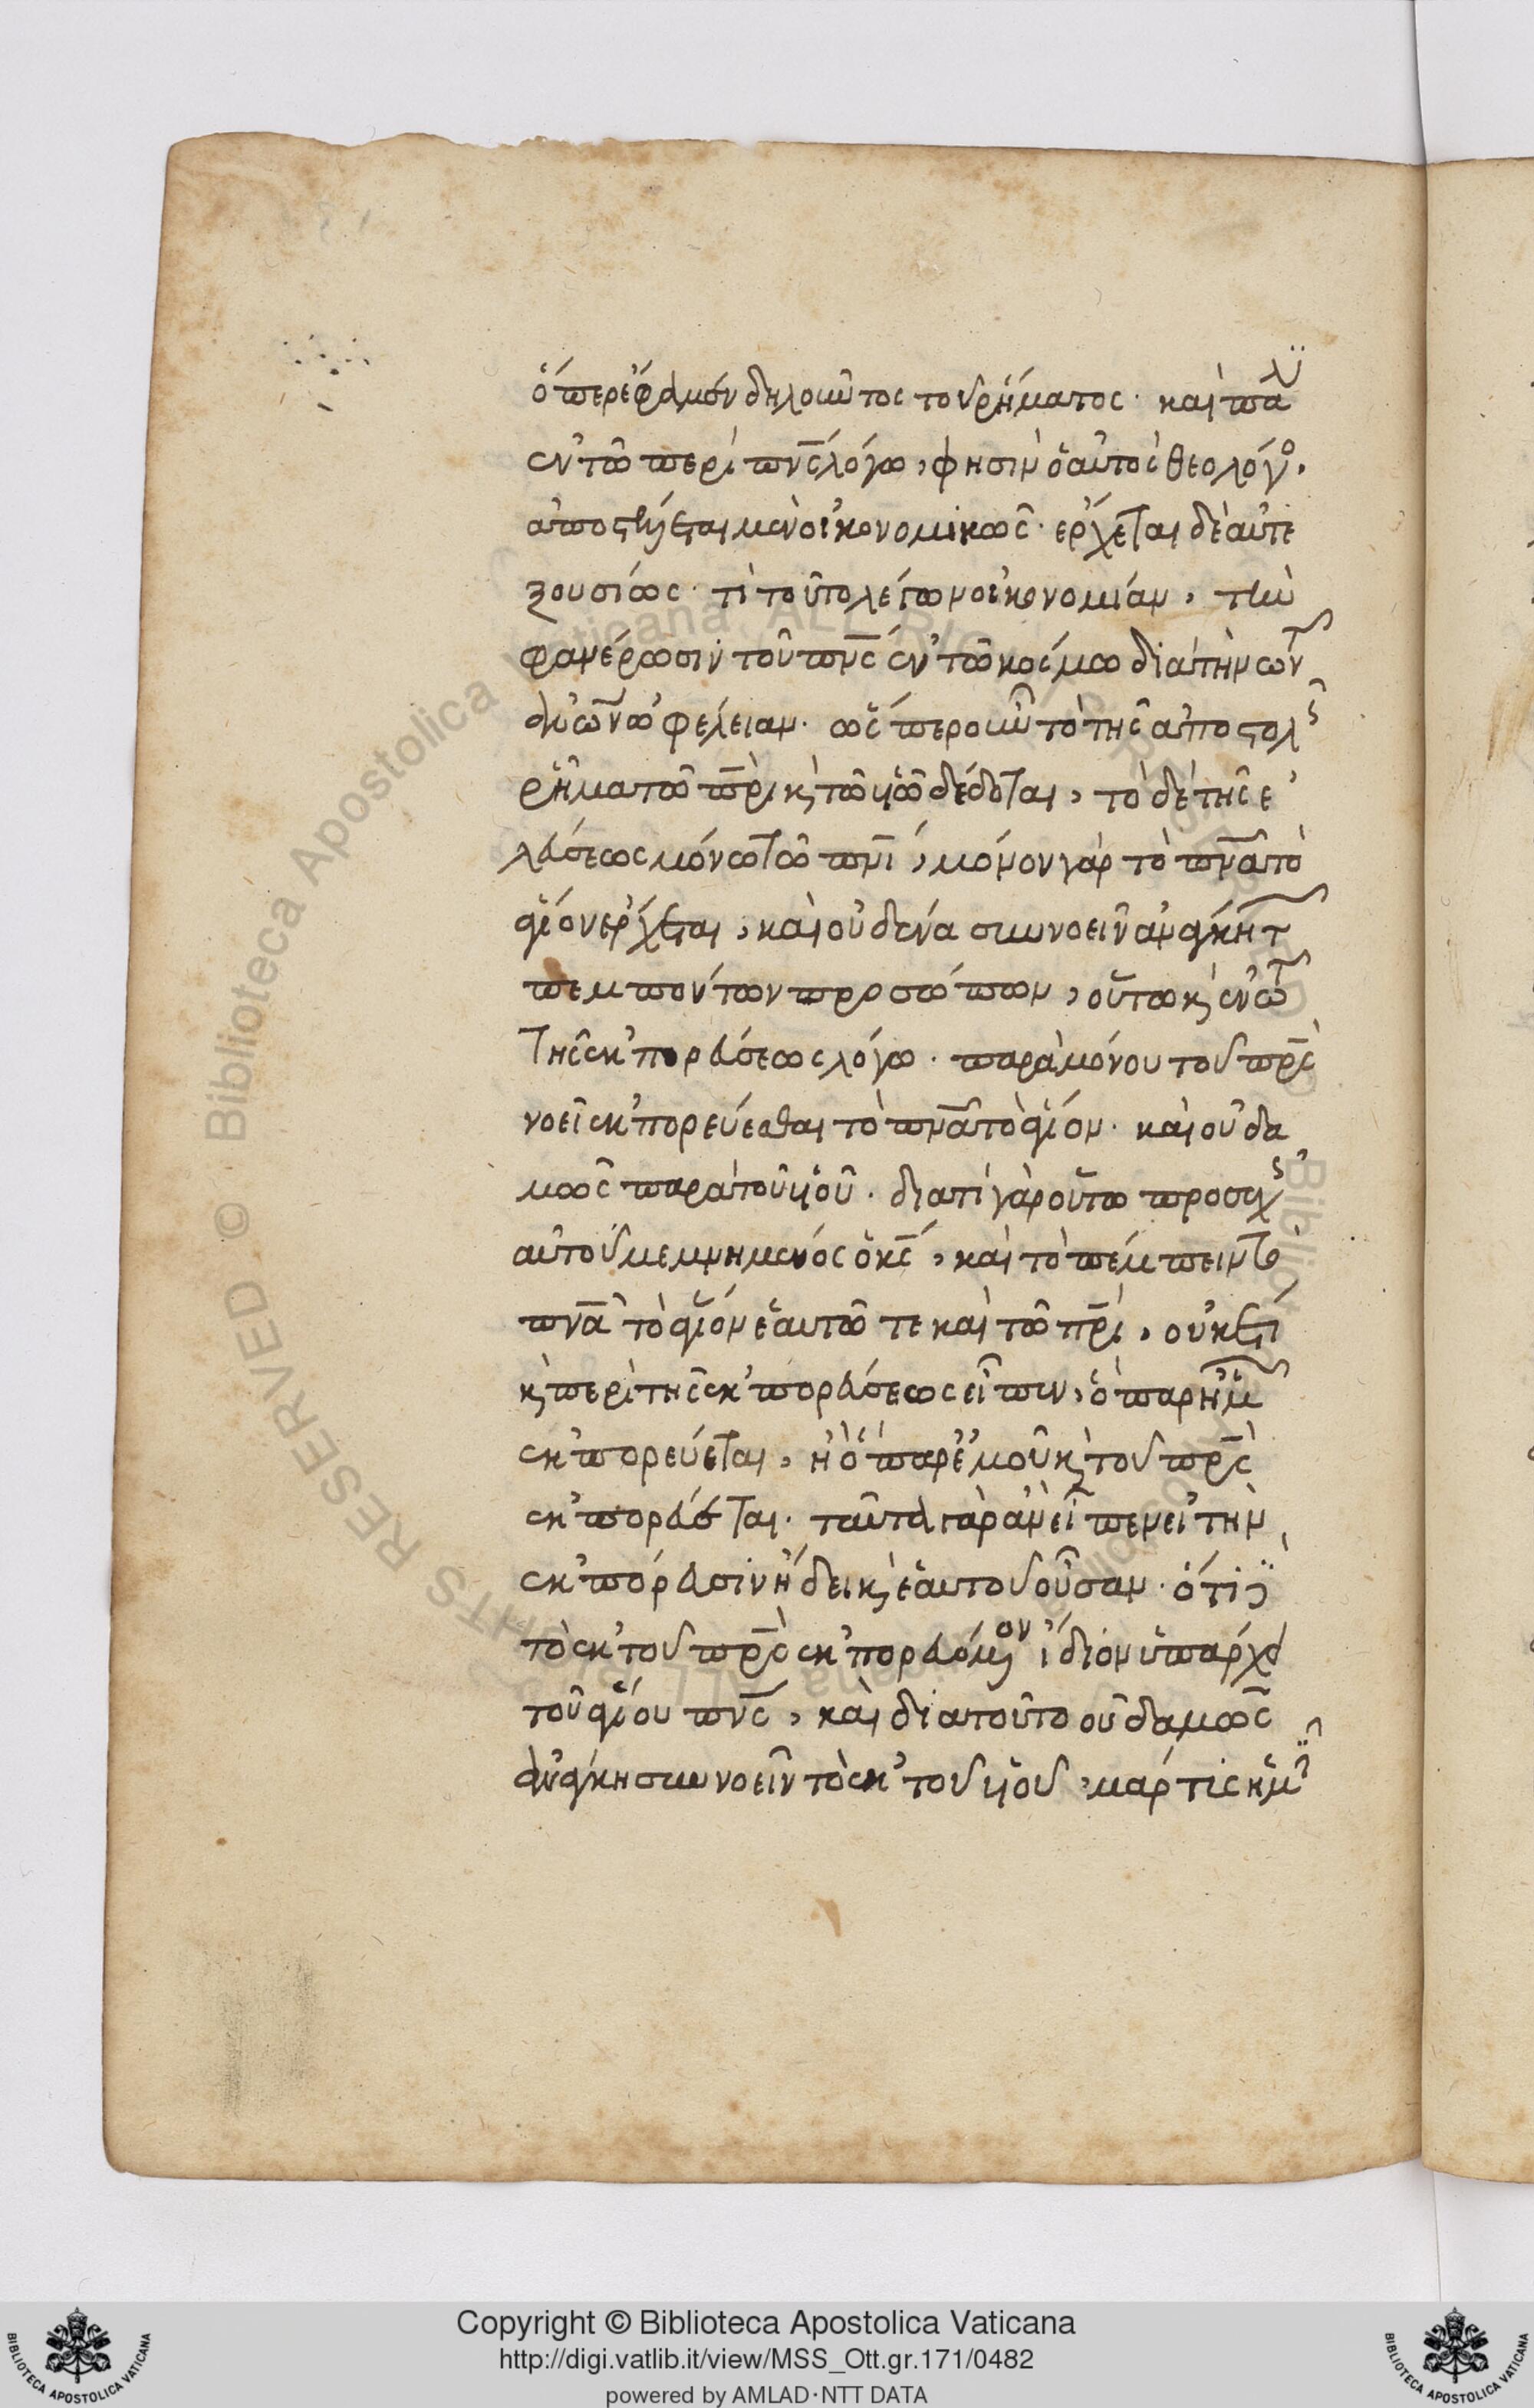 ὅπερ ἔφαμεν δηλοῦντος τοῦ ῥήματος· καὶ πάλιν
ἐν τῶ περὶ πνς λόγω, φησὶν ὁ αὐτὸς θεολόγος,
ἀποστέλλεται μὲν οἰκονομικῶς· ἔρχεται δὲ αὐτε
ξουσίως· τί τοῦτο λέγων οἰκονομίαν, τὴν
φανέρωσιν τοῦ πνς ἐν τῶ κόσμω διὰ τὴν τῶν
ἀνων ὠφέλειαν· ὥσπερ οὖν τὸ τῆς ἀποστολῆς
ῥῆμα τῶ πρι κ τῶ υἱῶ δέδοται, τὸ δὲ τῆς ἐ
λεύσεως μόνω τῶ πνι, μόνον γὰρ τὸ πνα τὸ
ἅγιον ἔρχεται, καὶ οὐδένα συννοεῖν ἀνάγκη τῶν
πεμπόντων προσώπων, οὕτω κ ἐν τῶ
τῆς ἐκπορεύσεως λόγω· παρὰ μόνου τοῦ πρς
νοεῖ ἐκπορεύεσθαι τὸ πνα τὸ ἅγιον· καὶ οὐδα
μῶς παρὰ τοῦ υἱοῦ· διατί γὰρ οὕτω προσεχῶς
αὐτοῦ μεμνημένος ὁ κς, καὶ τὸ πέμπειν τὸ
πνα τὸ ἅγιον ἑαυτῶ τε καὶ τῶ πρι, οὐκέτι
κ περὶ τῆς ἐκπορεύσεως εἶπεν, ὃ παρ' ἡμῶν
ἐκπορεύεται, ἢ ὃ παρ' ἐμοῦ κ τοῦ πρς
ἐκπορεύεται· ταῦτα γὰρ ἂν εἶπεν εἰ τὴν
ἐκπόρευσιν ἤδει κ ἑαυτοῦ οὖσαν· ὅτι
τὸ ἐκ τοῦ πρς ἐκπορευόμενον ἴδιον ὑπάρχει
τοῦ ἁγίου πνς, καὶ διατοῦτο οὐδαμῶς
ἀνάγκη συννοεῖν τὸ ἐκ τοῦ υἱοῦ, μάρτις ἡμῖν
Copyright © Biblioteca Apostolica Vaticana
http://digi.vatlib.it/view/MSS_Ott.gr.171/0482
powered by AMLAD·NTT DATA